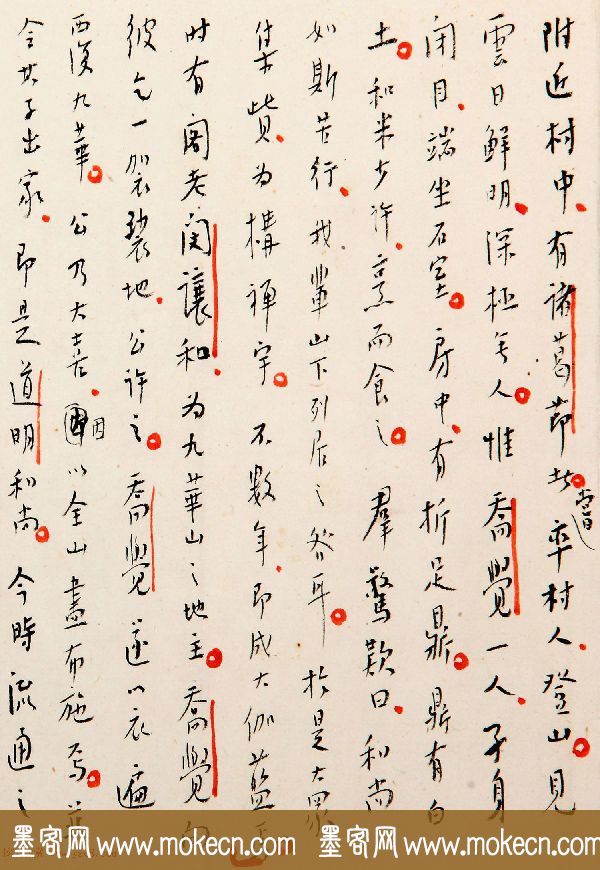 附近村中.有諸葛節 此嘗率村人.登山見
雲日鮮明.深極無人。惟喬覺一人.孑身
閉目.端坐石室。房中.有折足鼎。鼎有白
土。和米少許.烹而食之。羣驚歎曰.和尚
如斯苦行.我輩山下列居之咎耳。於是大眾
集貲.為構禪宇。不數年.即成大伽藍焉
時有閣老閔讓和.為九華山之地主。喬覺向
彼乞一袈裟地.公許之。喬覺遂以衣遍
西復九華。公乃大喜.因以全山盡布施焉。並
令其子出家.即是道明和尚。今時流通之
墨客网 www.mokecn.com 墨客网 www.mokecn.com